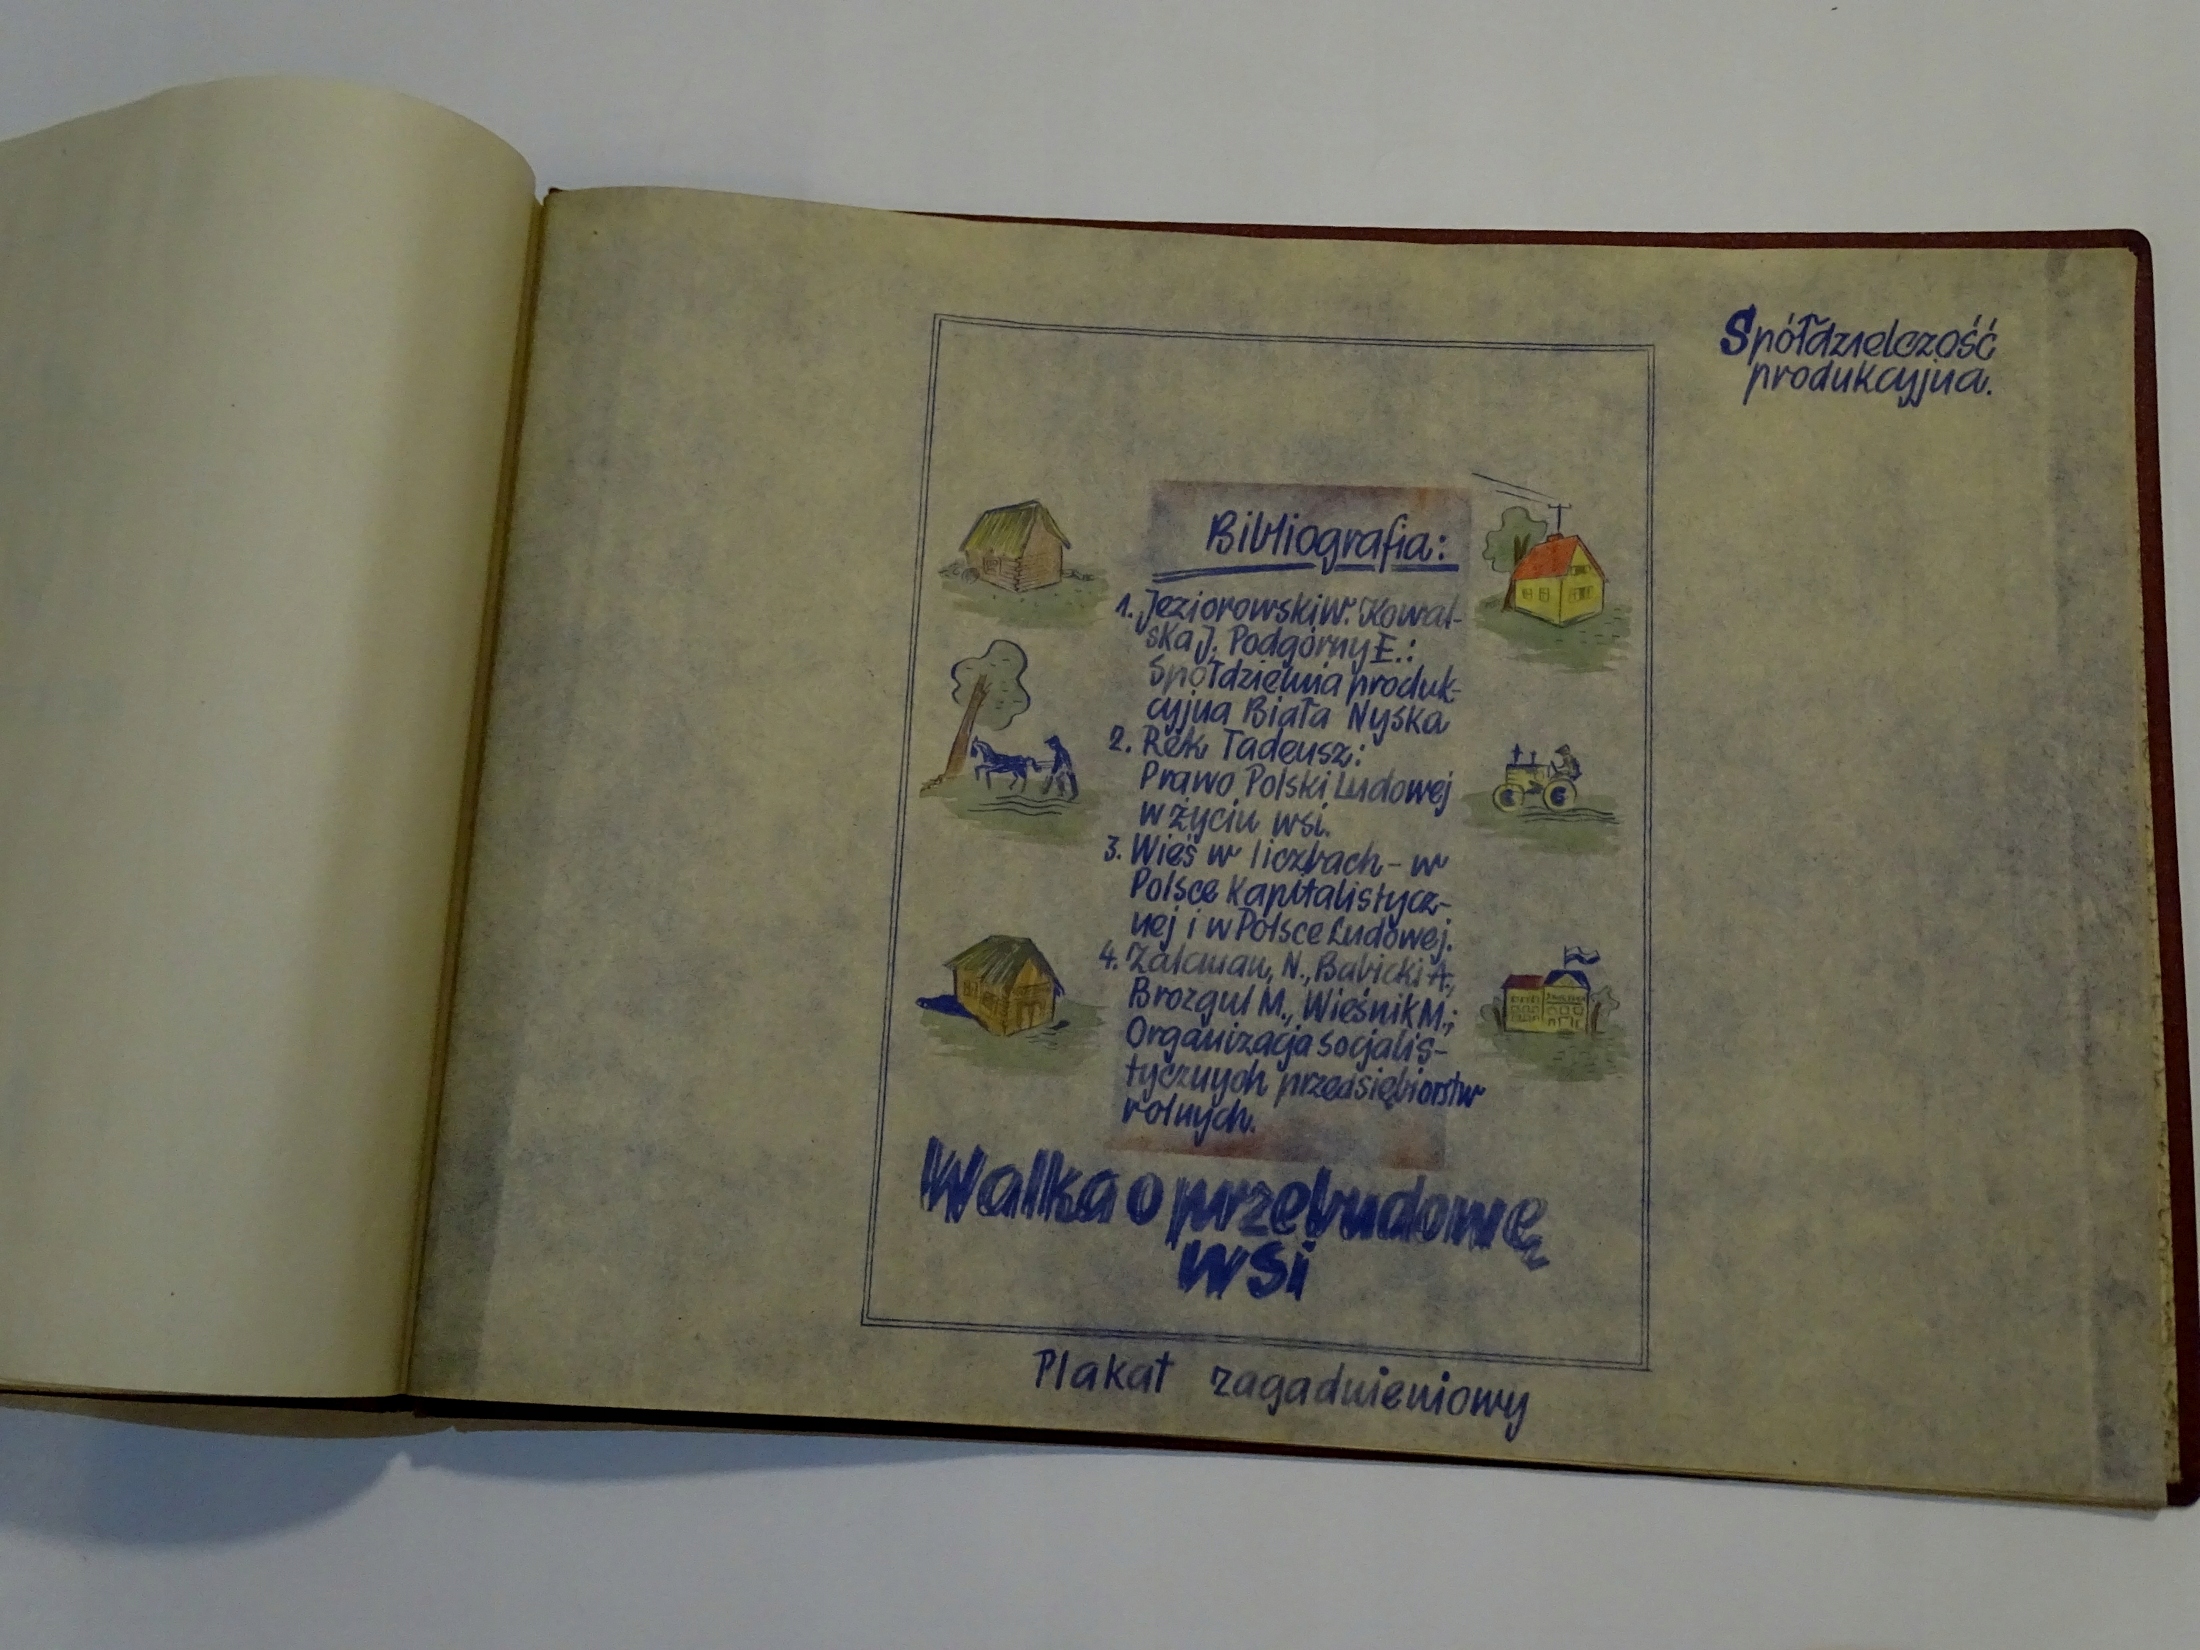 Spółdzielczość
produkcyjna.
Bibliografia:
1. Jeziorowski W. Kowal-
ska J. Podgórny E.:
Spółdzielnia produk-
cyjna Biała Nyska
2. Rek Tadeusz:
Prawo Polski Ludowej
w życiu wsi.
3. Wieś w liczbach - w
Polsce kapitalistycz-
nej i w Polsce Ludowej.
4. Zalcman, N., Babicki A.,
Brozgul M., Wieśnik M.;
Organizacja socjalis-
tycznych przedsiębiorstw
rolnych.
Walka o przebudowę
wsi
Plakat zagadnieniowy